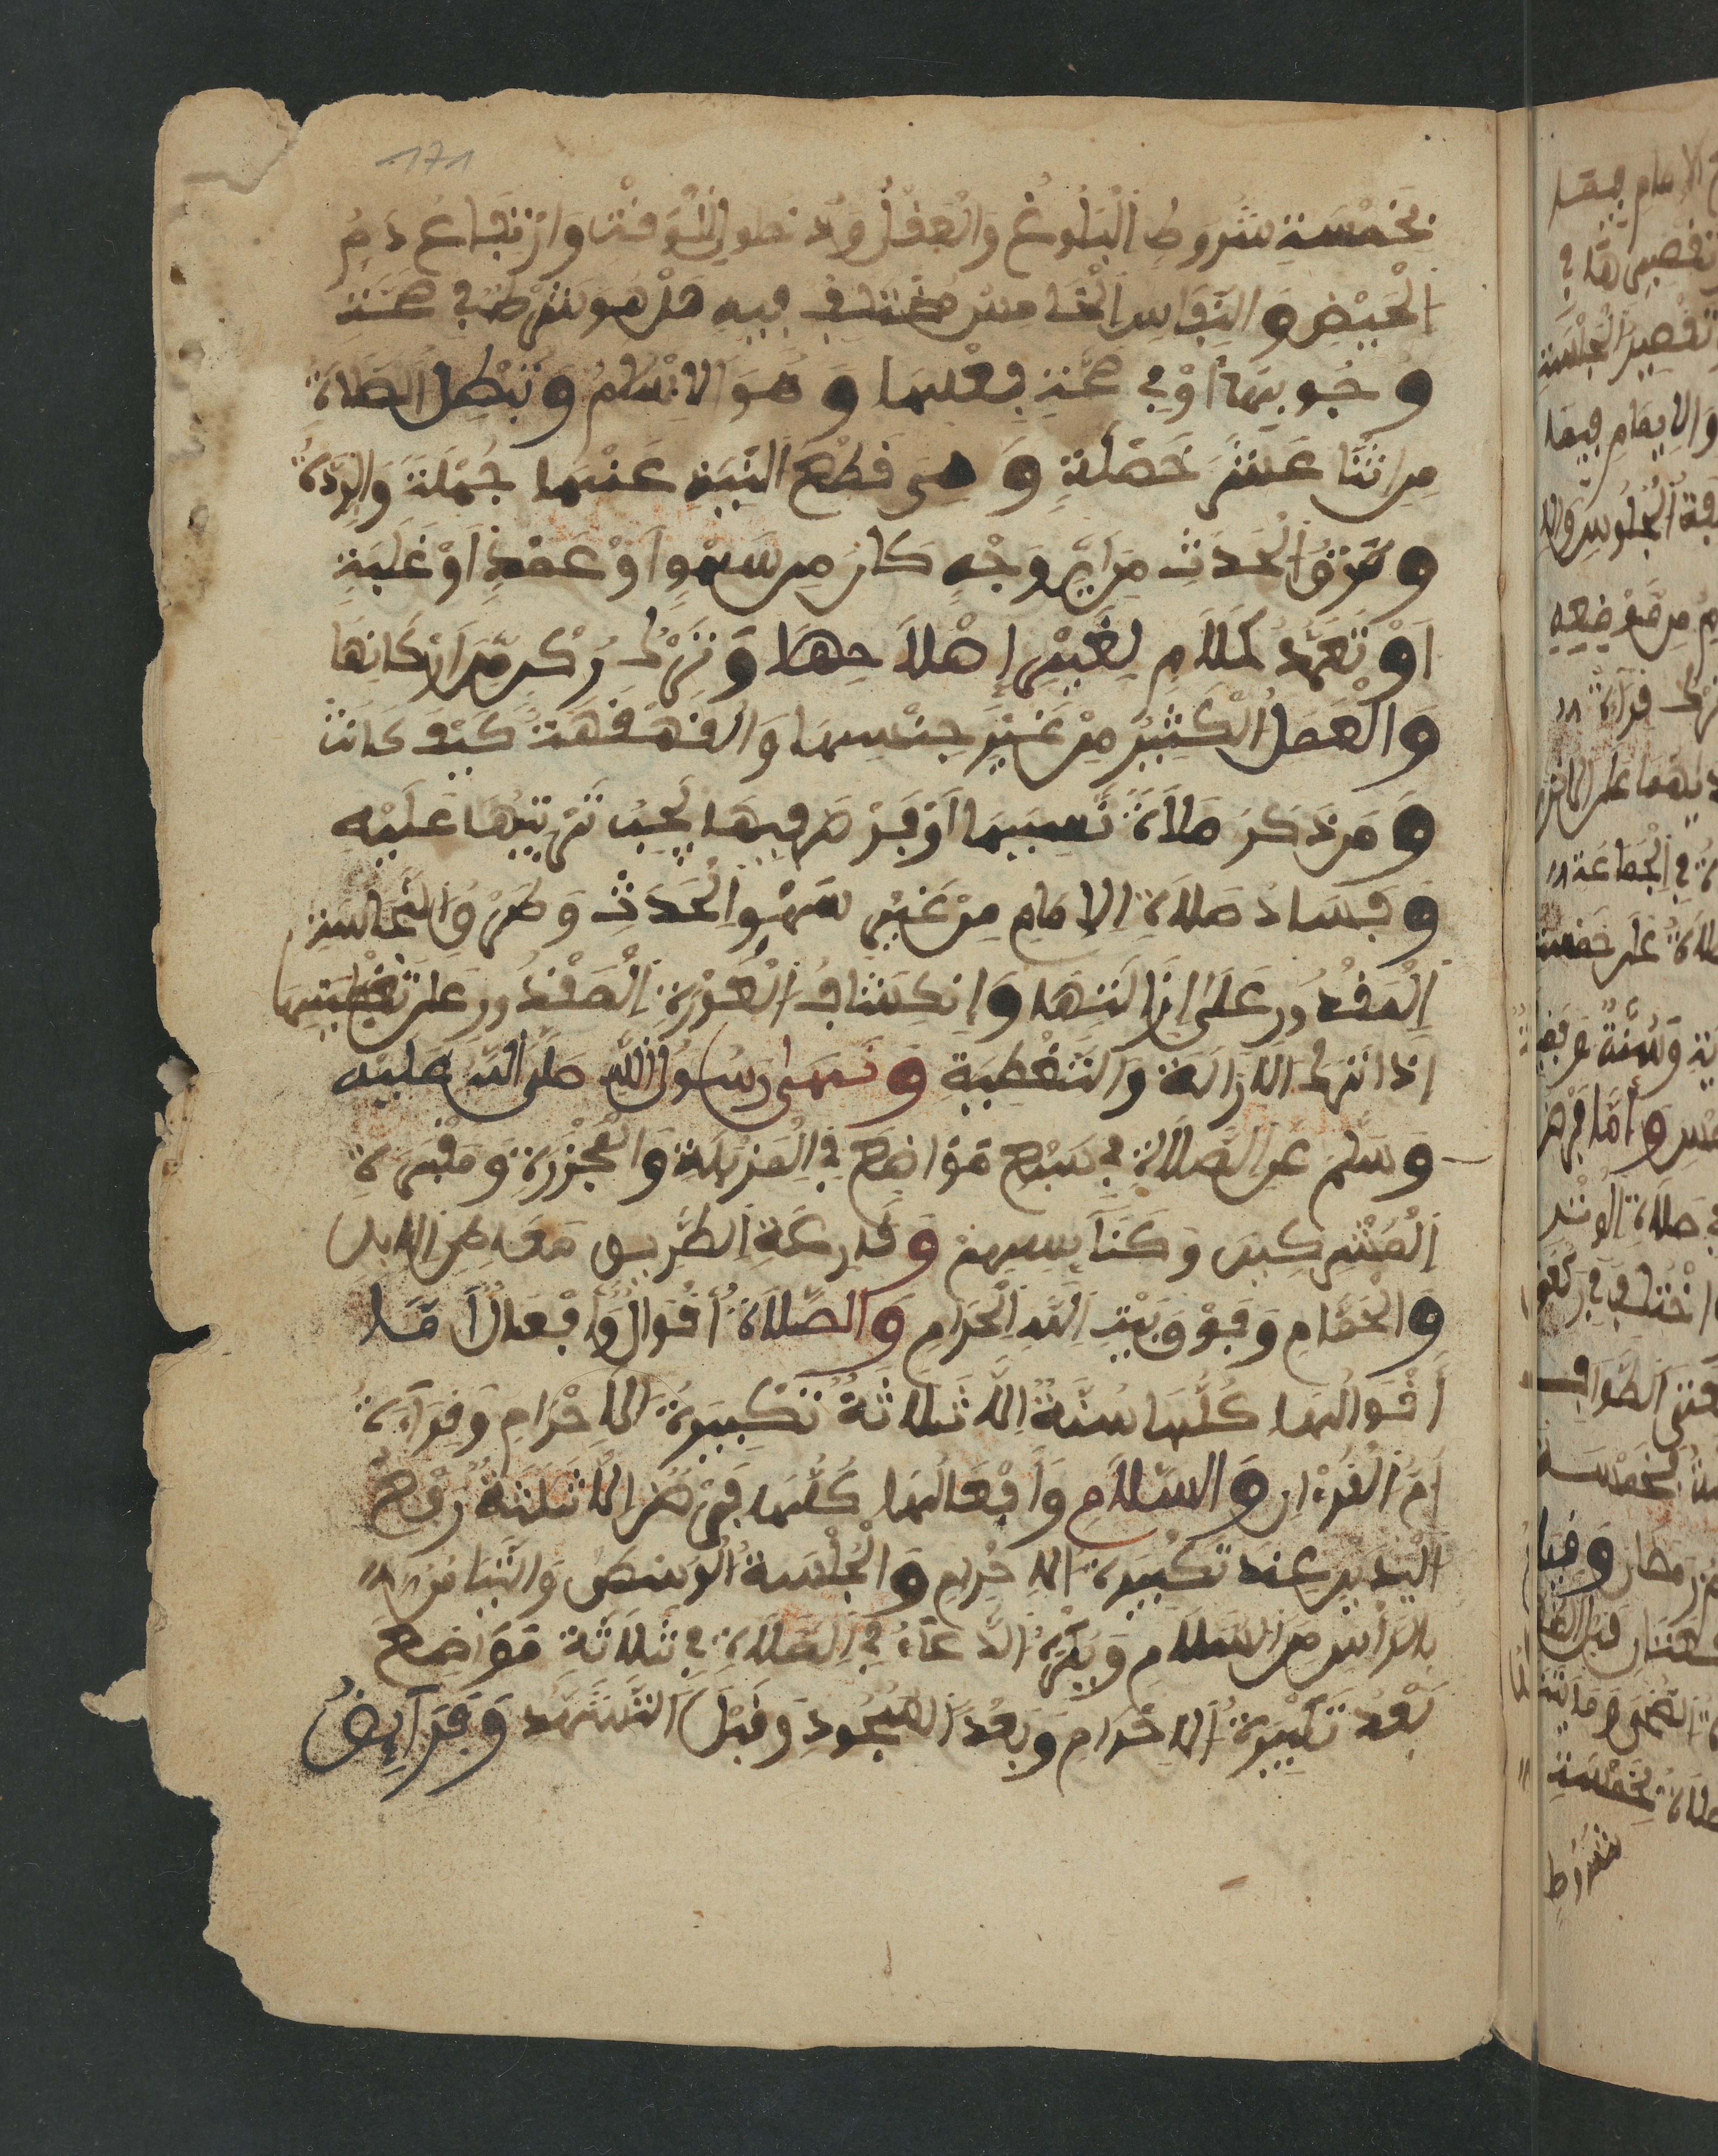 171
بخمسة شروط البلوغ والعقل ودخول الوقت وارتفاع دم
الحيض والنفاس الخامس مختلف فيه هل هو شرط في صحة
وجوبها أو في صحة فعلها وهو الإسلام وتبطل الصلاة
من اثنا عشر خصلة وهي قطع النية عنها جملة والردة
وطرو الحدث من أي وجه كان من سهو أو عمد أو غلبة
أو تعمد كلام لغير إصلاحها وترك ركن من أركانها
والعمل الكثير من غير جنسها والقهقهة كيف كانت
ومن ذكر صلاة نسيها أو فرط فيها يجب ترتيبها عليه
وفساد صلاة الإمام من غير سهو الحدث وطرو النجاسة
المقدور على إزالتها وانكشاف العورة المقدور على تغطيتها
إذا ترك الإزالة والتغطية ونهى رسول الله صلى الله عليه
وسلم عن الصلاة في سبع مواضع في المزبلة والمجزرة ومقبرة
المشركين وكنآيسهم وقارعة الطريق معاطن الإبل
والحمام وفوق بيت الله الحرام والصلاة أقوال وأفعال أما
أقوالها كلها سنة إلا ثلاثة تكبيرة الإحرام وقراءة
أم القرءان والسلام وأفعالها كلها فرض إلا ثلثة رفع
اليدين عند تكبيرة الإحرام والجلسة الوسطى والتيامن
بالرأس من السلام ويكره الدعاء في الصلاة في ثلاثة مواضع
بعد تكبيرة الإحرام وبعد السجود وقبل التشهد وفرآيض